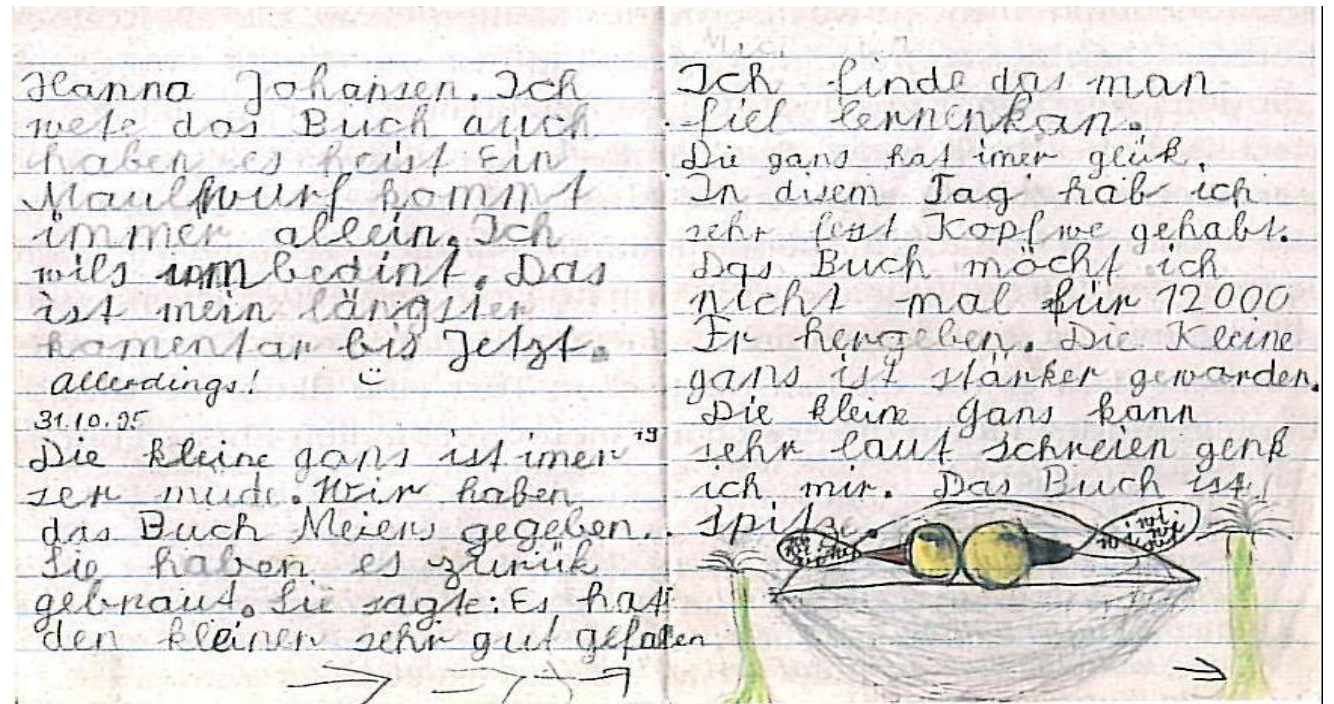 Hanna Johansen. Ich
wete das Buch auch
haben es heist Ein
Maulwurf kommt
immer allein. Ich
wils umbedint. Das
ist mein längster
komentar bis Jetzt.
allerdings!
31.10.95
Die kleine gans ist imer
ser müde. Wir haben
das Buch Meiers gegeben.
Sie haben es zurük
gebraut. Sie sagte: Es hat
den kleinen sehr gut gefalen
19
Ich finde das man
fiel lernenkan.
Die gans hat imer glük.
In disem Tag hab ich
sehr fest Kopfwe gehabt.
Das Buch möcht ich
nicht mal für 12000
Fr hergeben. Die Kleine
gans ist stärker gewarden.
Die kleine Gans kann
sehr laut schreien genk
ich mir. Das Buch ist
spitze.